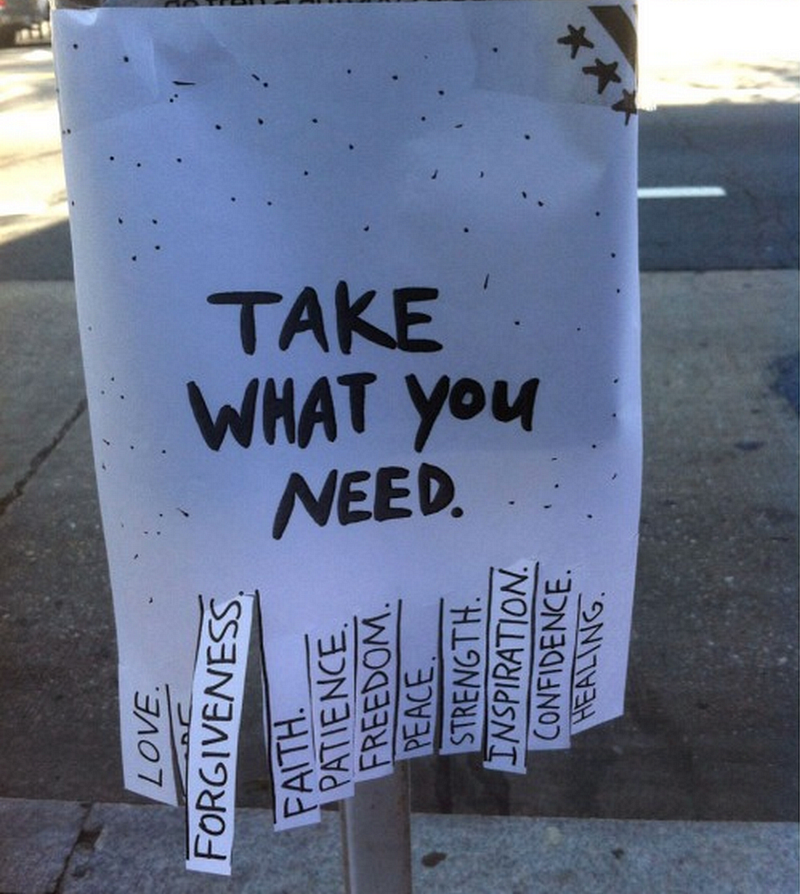 TAKE
WHAT you
NEED.
LOVE.
FORGIVENESS.
FAITH.
PATIENCE.
FREEDOM.
PEACE.
STRENGTH.
INSPIRATION.
CONFIDENCE.
HEALING.